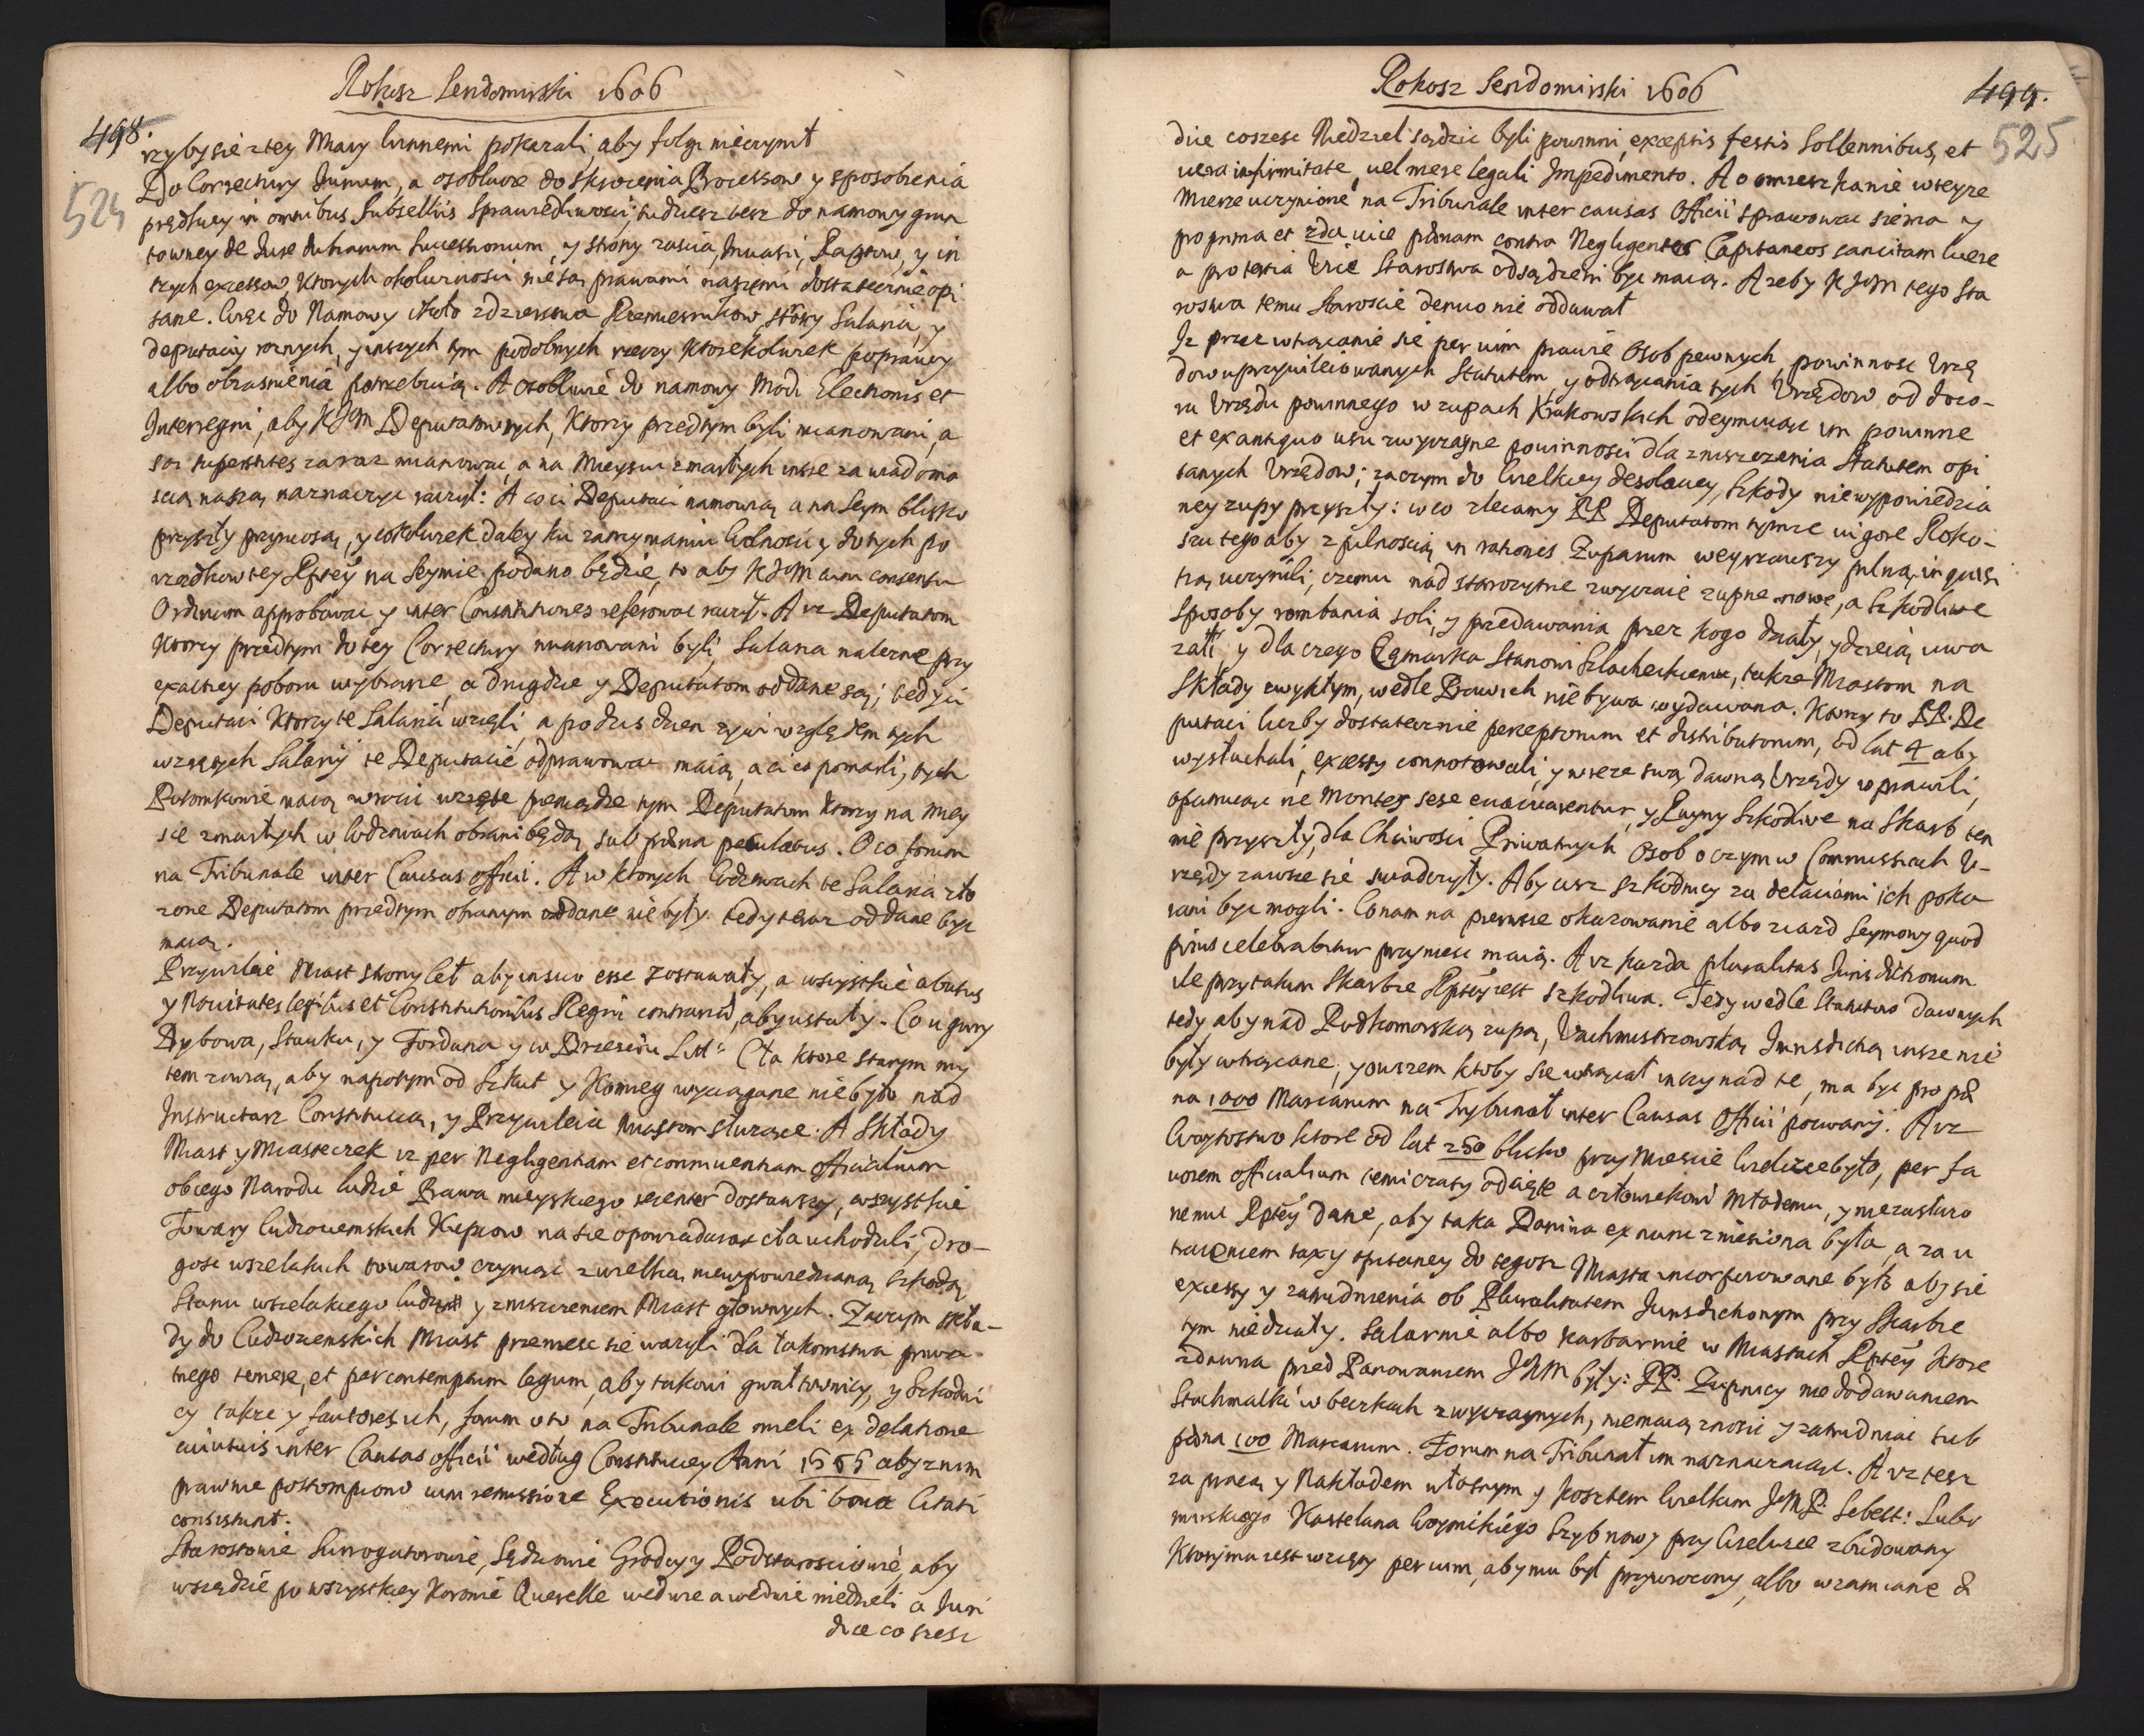 Rokosz Sendomirski 1606
498.
524
rzyby sie z tey Miary winnemi pokazali, aby folgi nieczynił
Do Correctury Iurium, a osobliwie do skrocenia Processow y sposobienia
prędkiey in omnibus Subselliis Sprawiedliwosci, tudziesz tesz do namowy grun
towney de Iure dutrarum Successionum, y strony zascia, Inuasii, Raptow, y in
szych excessow, ktorych okolicznosci nie są prawami naszemi dostatecznie opi
sane. Więc do Namowy około zdzierstwa Rzemiesnikow, strony Salaria, y
deputaciy roznych, y inszych tym podobnych rzeczy ktorekolwiek poprawy
albo obiasnienia potrzebuią. A osobliwie do namowy Modi Electionis et
Interregni, aby KJM Deputatow tych, ktorzy przedtym byli mianowani, a
są superstites zaraz mianowac, a na Mieyscu zmarłych insze za wiadomo
scią naszą naznaczyc raczył: A co ci Deputaci namowią a na Seym blisko
przyszły przyniosą, y cokolwiek daley ku zatrzymaniu Wolnosci y dobrych po
rządkow tey Rptey na Seymie podano będzie, to aby KJM cum consensu
Ordinum approbowac y inter Constitutiones referowac raczył. A iz Deputatom
ktorzy przedtym do tey Correctury mianowani byli, Salaria nalezne przy
exactiey poboru wybrane, a drugdzie y Deputatom oddane są; tedy ci
Deputaci ktorzy te Salaria wzięli, a po dzis dzien zywi względem tych
wziętych Salariy te Deputacie odprawowac maią, a ci co pomarli, tych
Potomkowie maią wrocic wzięte pieniądze tym Deputatom ktorzy na miey
sce zmarłych w Wodztwach obrani będą, sub poena peculatus. O co forum
na Tribunale inter Causas officii. A w ktorych Wodztwach te Salaria zło
zone Deputatom przedtym obranym oddane nie były. tedy teraz oddane byc
maią.
Przywileie Miast strony Cet aby in suo esse zostawały, a wszystkie abusus
y Nouitates legibus et Constitutionibus Regni contrariae, aby ustały. Co u gury
Dybowa, Stauku, y Fordana y w Brzesciu Litt: Cła ktore starym my
tem zowią, aby napotym od Szkut y Komieg wyciągane nie było nad
Instructarz Constitucią, y Przywileie Miastom słuzące. A Składy
Miast y Miasteczek iz per Negligentiam et conniuentiam officialium
obcego Narodu ludzie Prawa mieyskiego recenter dostawszy, wszystkie
Towary Cudzoziemskich Kupcow na sie opowiadaiąc cła uchodzili, dro-
gosc wszelakich towarow czyniąc z wielką niewypowiedzianą szkodą
Stanu wszelakiego ludzi y zniszczeniem Miast głownych. Zaczym skła-
dy do Cudzoziemskich Miast przeniesc sie wazyli dla łakomstwa prywa-
tnego temere, et per contemptum legum, aby takowi gwałtownicy, y Szkodni
cy takze y fautores ich, forum o to na Tribunale mieli ex delatione
cuiusuis inter Causas officii według Constituciey Anni 1565 aby z nim
prawnie postompiono cum remissione Executionis ubi bona Citati
consistunt.
Starostowie Surrogatorowie, Sędziowie Grodscy y Podstarosciowie, aby
wszędzie po wszystkiey Koronie Querelle we dwie a we dwie niedzieli a Iuri
dice co szesz
Rokosz Sendomirski 1606
499.
525
dice coszesc Niedziel sądzic byli powinni, exceptis festis Sollennibus, et
uera infirmitate, uel mere legali Impedimento. A o omieszkanie w teyze
Mierze uczynione na Tribunale inter causas Officii sprawowac sie maią
pro prima et 2da uice poenam contra Negligentes Capitaneos sancitam luere
a pro tertia uice Starostwa odsądzeni byc maią. A zeby KJM tego Sta
rostwa temu Staroscie denuo nie oddawał
Iz przez wtrącanie sie per uim prawie Osob pewnych, powinnosc Urzę
dow uprzywileiowanych Statutem, y odtrącania tych Urzędow od dozo-
ru Urzędu powinnego w zupach Krakowskich odeymuiąc im powinne
et ex antiquo usu zwyczayne powinnosci dla zniszczenia Statutem opi
sanych Urzędow; zaczym do Wielkiey desolaciey, Szkody niewypowiedzia
ney zupy przyszły: w co zlecamy PP Deputatom tymze uigore Roko-
szu tego aby z pilnoscią in rationes Zuparum weyrzawszy pilną inquisi
tią uczynili, czemu nad starozytne zwyczaie zupne nowe, a Szkodliwe
sposoby rombania soli, y przedawania przez kogo działy, y dzieią uwa
zali, y dla czego Cymarka Stanowi Szlacheckiemu, takze Miastom na
Składy zwykłym, wedle Praw ich nie bywa wydawana. Ktorzy to PP. De
putaci liczby dostatecznie perceptorum et distributorum, od lat 4 aby
wysłuchali, excessy connotowali, y w reze swą dawną Urzędy wprawili,
opatruiąc ne Montes sese euacuarentur, y Ruyny Szkodliwe na Skarb ten
nie przyszły, dla Chciwosci Priwatnych Osob o czym w Commissiach U-
rzędy zawsze sie swiadczyły. Aby iusz szkodnicy za delaciami ich poka
rani byc mogli. Co nam na pierwsze okazowanie albo ziazd Seymowy quod
prius celebrabitur przyniesc maią. A iz kazda pluralitas Iurisdictionum
ile przy takim Skarbie Rptey iest szkodliwa. Tedy wedle Statutow dawnych
tedy, aby nad Podkomorską zupą, Bachmistrzowską Iurisdictią insze nie
były wtrącane, y owszem ktoby sie wtrącał inszy nad te, ma byc pro poe
na 1000 Marcarum na Trybunał inter Causas Officii pozwany. A iz
Woytostwo ktore od lat 250 blisko przy Miescie Wieliczce było, per fa
uorem officialium temi czasy odcięte a człowiekowi młodemu, y niezasłuzo
nemu Rptey dane, aby taka Danina ex nunc zniesiona była, a za u
iszczeniem taxy opisaney do tegosz Miasta incorporowane było aby sie
excessy y zatrudnienia ob Pluralitatem Iurisdictionym przy Skarbie
tym niedziały. Solarnie albo karbarnie w Miastach Rptey ktore
zdawna przed Panowaniem JKM były: PP. Zupnicy niedodawaniem
Stochmalki w beczkach zwyczaynych, niemaią znosic y zatrudniac sub
poena 100 Marcarum. Forum na Tribunał im naznaczaiąc. A iz tesz
za pracą y Nakładem własnym y kosztem Wielkim JMP. Sebest: Lubo
mirskiego Kasztelana Woynickiego Szyb nowy przy Wieliczce zbudowany
Ktory mu iest wzięty per uim, aby mu był przywrocony, albo w zamianę za